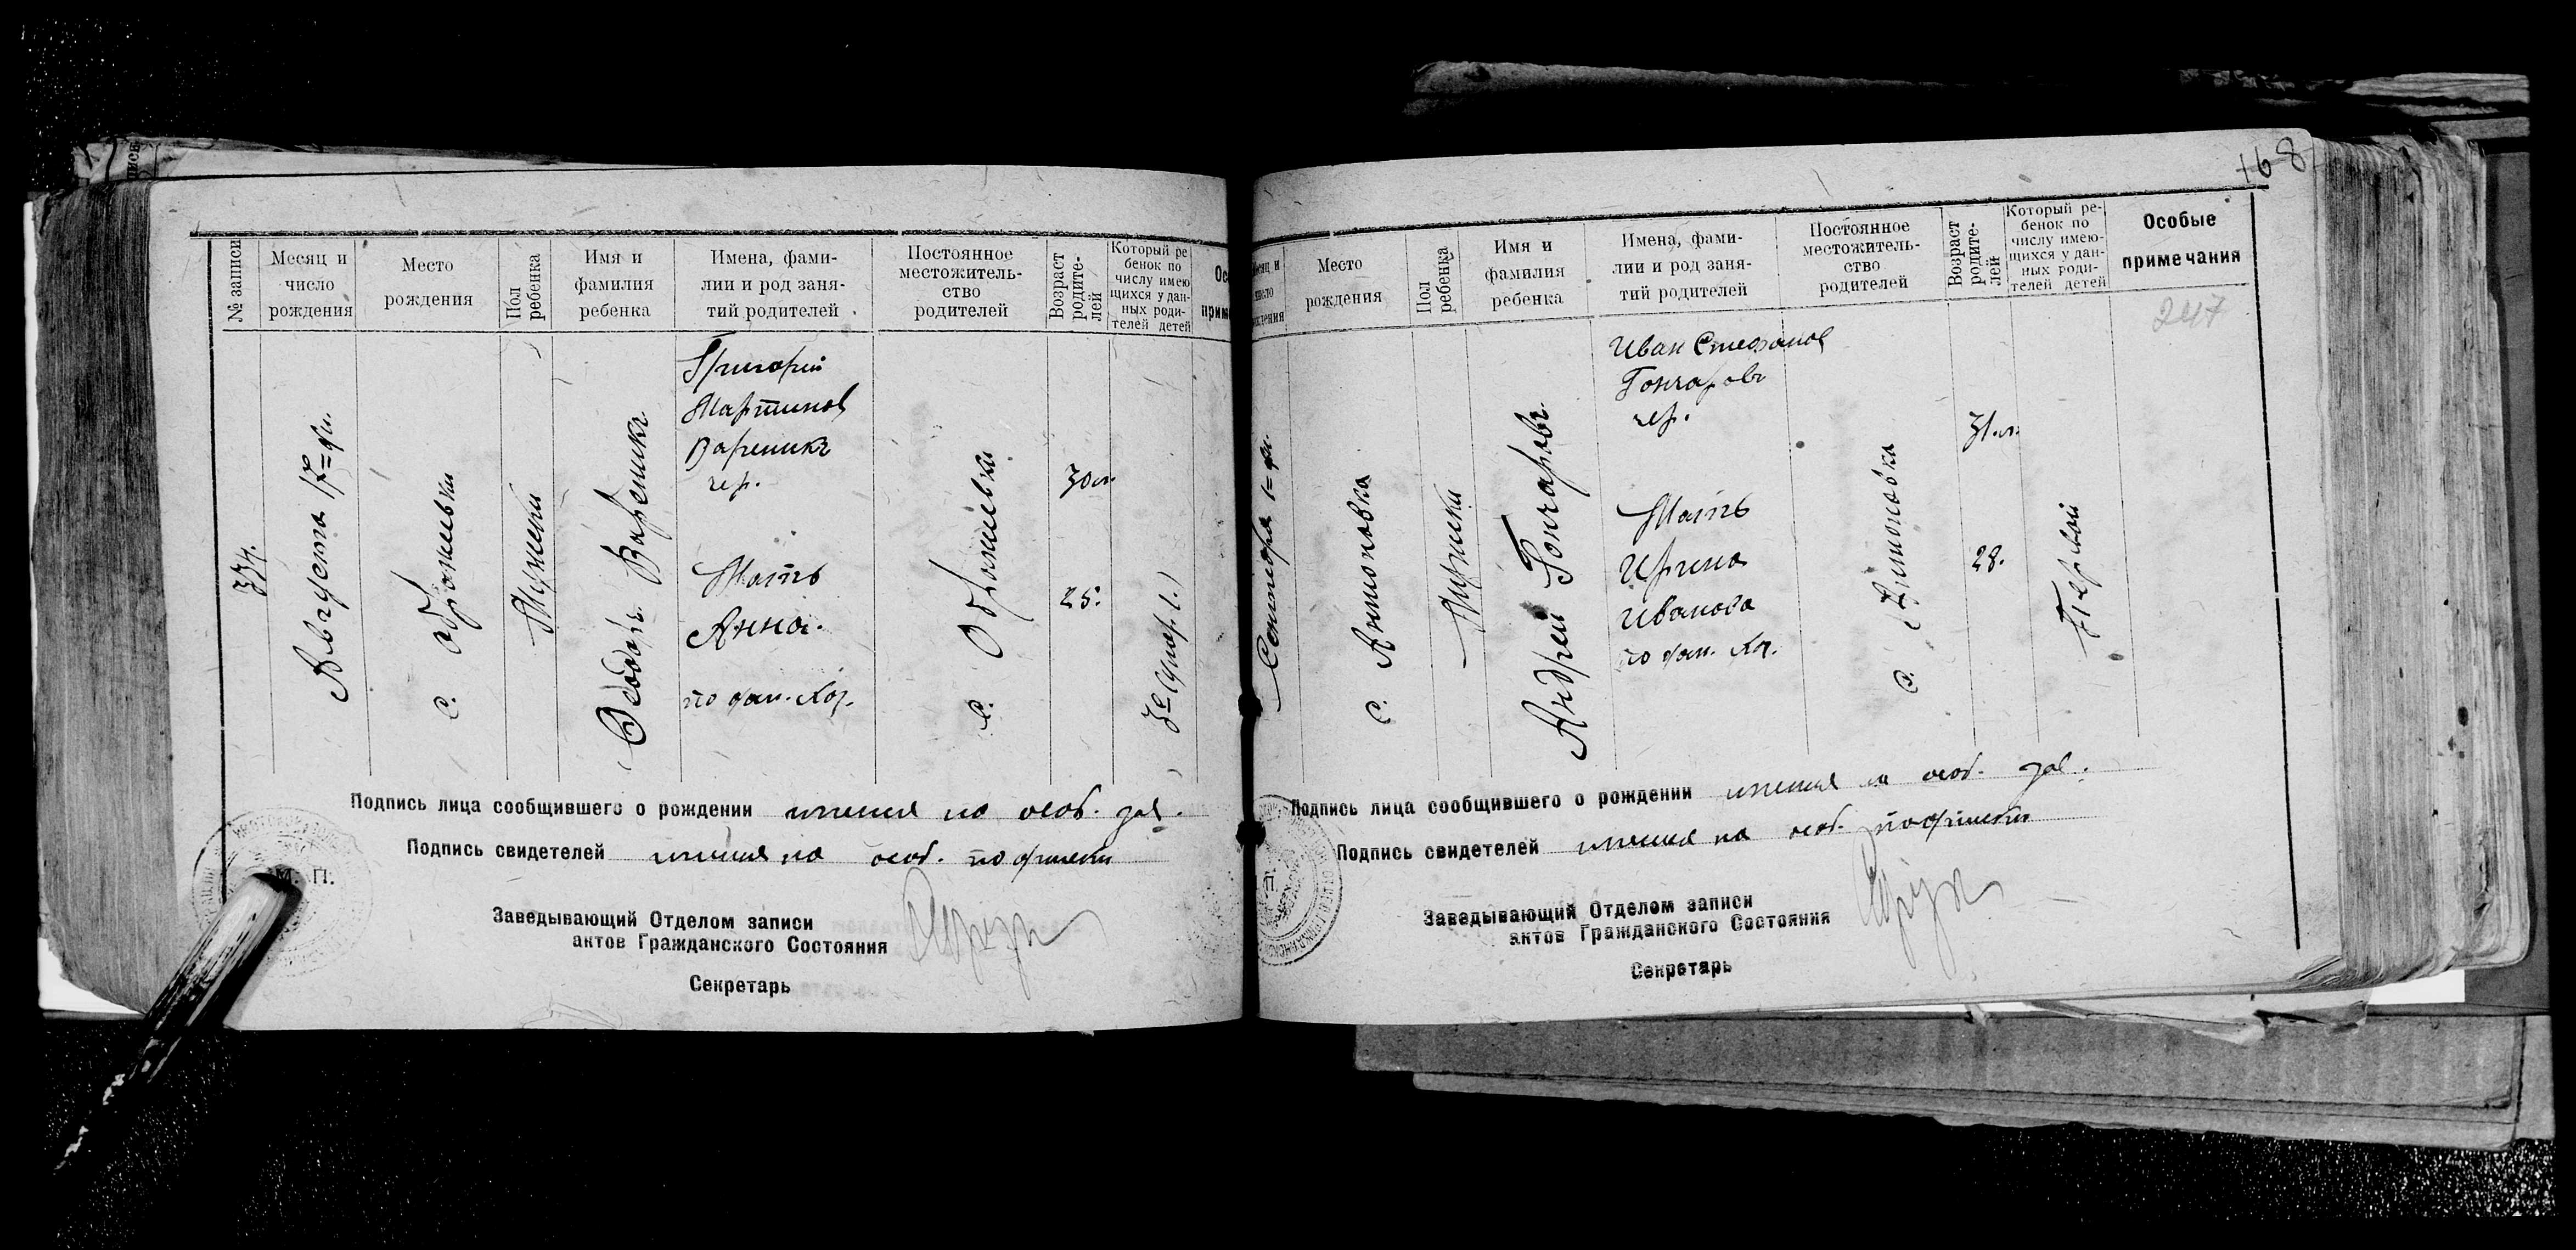 168
№ записи
Месяц и число рождения
Место рождения
Пол ребенка
Имя и фамилия ребенка
Имена, фамилии и род занятий родителей
Постоянное местожительство родителей
Возраст родителей
Который ребенок по числу имеющихся у данных родителей детей
337.
Августа 17=дн.
с.
Мужеск
Феодоръ Вареникъ
Григорій
Мартинов
Вареникъ
чер.
Мать
Анна.
по фам.
с.
30 л.
25.
Подпись лица сообщившего о рождении имения на особ. зая.
Подпись свидетелей на особ.
М. П.
Заведывающий Отделом записи
актов Гражданского Состояния
Секретарь
Место рождения
Пол ребенка
Имя и фамилия ребенка
Имена, фамилии и род занятий родителей
Постоянное местожительство родителей
Возраст родителей
Который ребенок по числу имеющихся у данных родителей детей
Особые примечания
247
Сентября 1=дн.
с. Антоновка
Мужеск
Андрей Гончаровъ
Иван Стефанов
Гончаровъ
чер.
Мать
Ирина
Иванова
по фам.
с. Антоновка
31.л.
28.
Первой
Подпись лица сообщившего о рождении на особ. зая.
Подпись свидетелей на особ.
П.
Заведывающий Отделом записи
актов Гражданского Состояния
Секретарь